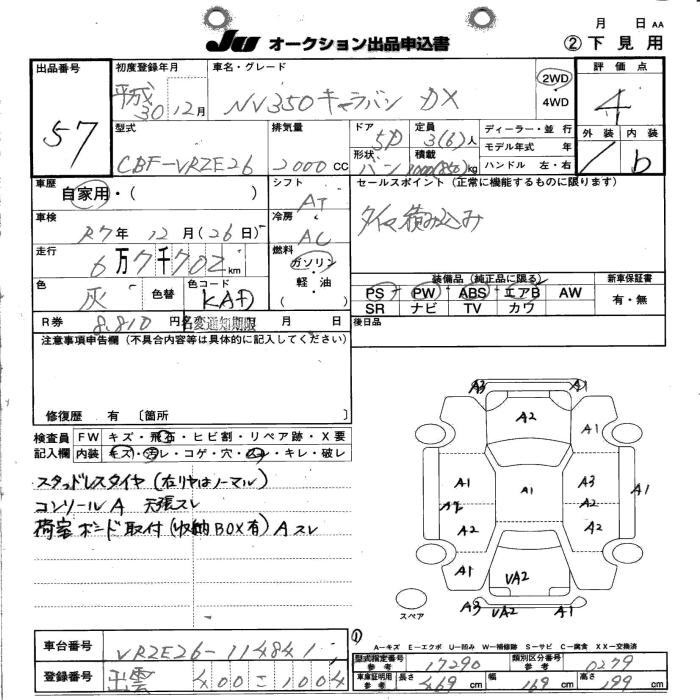 月 日 AA
JU オークション出品申込書 ② 下見用
出品番号 57
初度登録年月 平成 30年 12月
車名・グレード NV350 キャラバン DX
2WD
4WD
評価点 4
外装 内装 b
型式 CBF-VRZE26
排気量 2000 CC
ドア 5D
形状 バン
定員 3(6)人
積載 1000(850)kg
ディーラー・並行
モデル年式 年
ハンドル 左・右
車歴 自家用・( )
シフト AT
セールスポイント (正常に機能するものに限ります)
タイヤ積み込み
車検 R7年 12月 (26日)
冷房 AC
走行 6万7千702km
燃料 ガソリン
軽・油
( )
色 灰 色替 色コード KAD
装備品 (純正品に限る) 新車保証書
PS PW ABS エアB AW 有・無
SR ナビ TV カワ
R券 8,810円 名変通知期限 月 日
後日品
注意事項申告欄 (不具合内容等は具体的に記入してください)
修復歴 有 〔箇所 〕
検査員記入欄
FW キズ・飛石・ヒビ割・リペア跡・X要
内装 キズ・汚レ・コゲ・穴・スレ・キレ・破レ
スタッドレスタイヤ (右リヤはノーマル)
コンソールA 天張スレ
荷室ボード取付 (収納BOX有) Aスレ
A3 A1
A2
A1
A1 A1 A3 A1
A2 A2
A2 A2
A1 VA2
A3 VA2 A1
スペア
①
A-キズ E-エクボ U-凹み W-補修跡 S-サビ C-腐食 XX-交換済
車台番号 VRZE26-114841
型式指定番号 参考 17290 類別区分番号 参考 0279
登録番号 出雲 400 こ 1004
車庫証明用 参考 長さ 469cm 幅 169cm 高さ 199cm